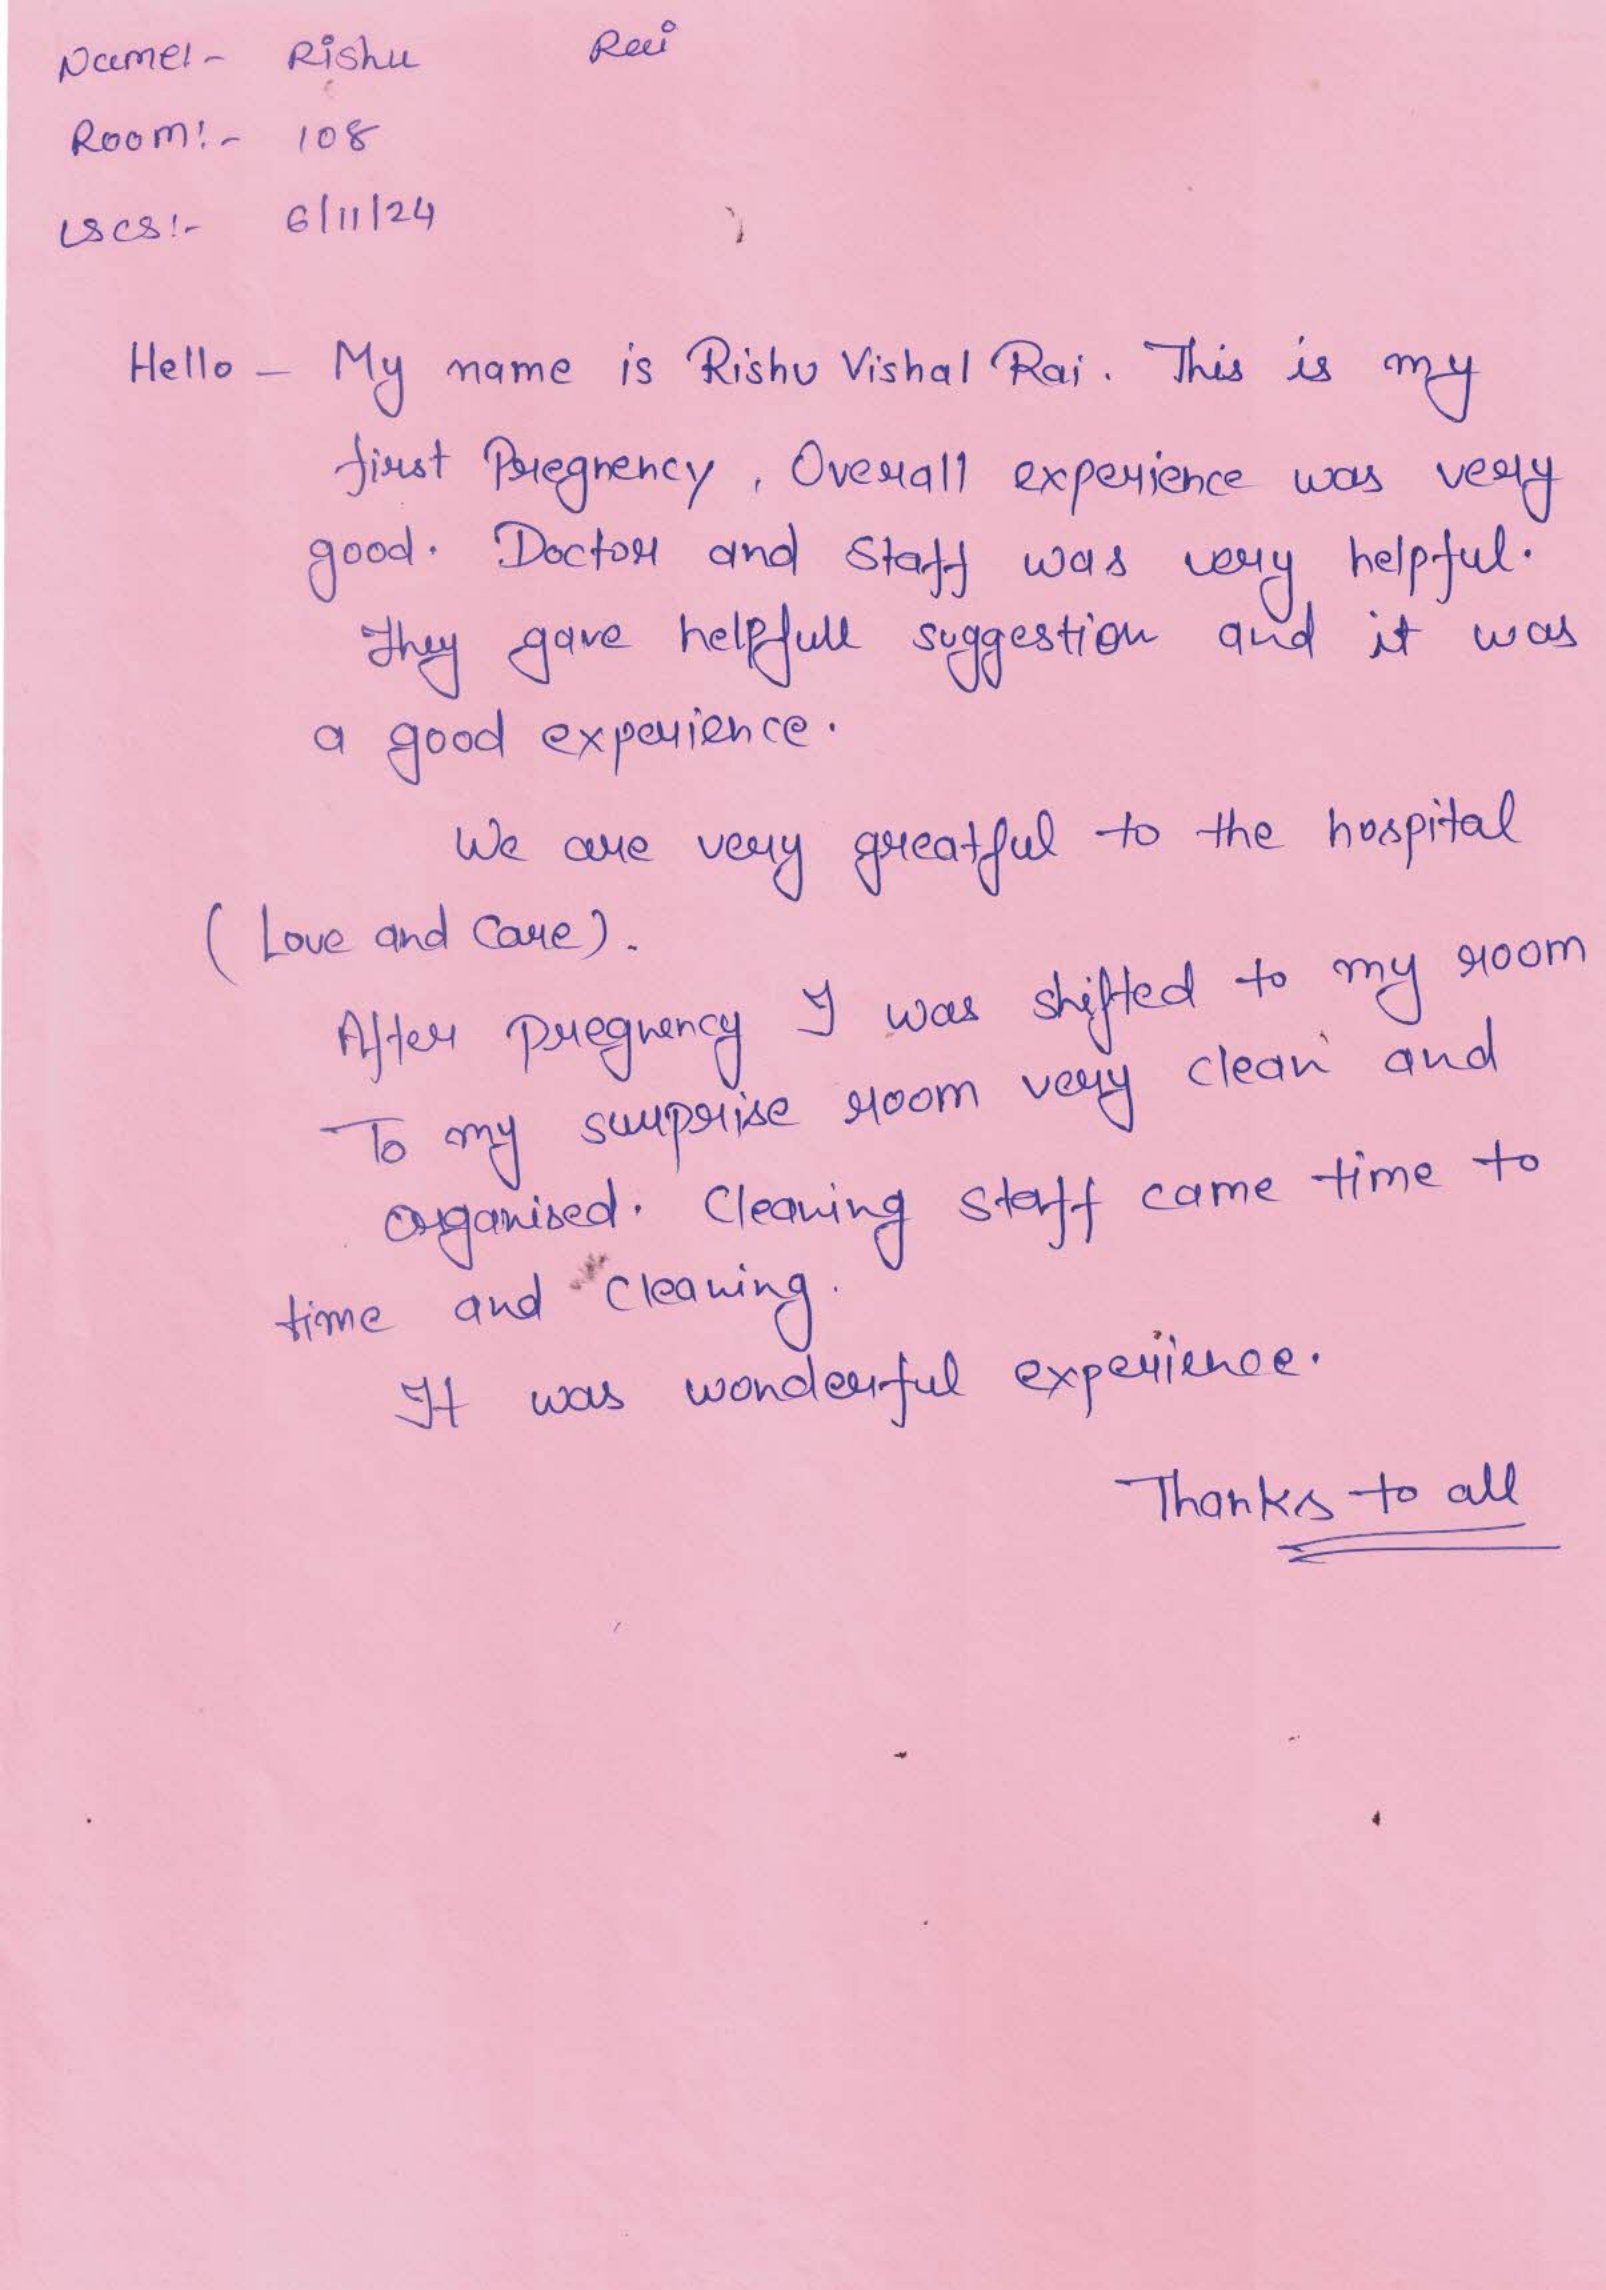 Name:- Rishu Rai
Room:- 108
LSCS:- 6/11/24
Hello - My name is Rishu Vishal Rai. This is my
first Pregnency, Overall experience was very
good. Doctor and Staff was very helpful.
They gave helpfull suggestion and it was
a good experience.
We are very greatful to the hospital
(Love and Care).
After pregnency I was shifted to my room
To my surprise room very clean and
organised. Cleaning staff came time to
time and cleaning.
It was wonderful experience.
Thanks to all